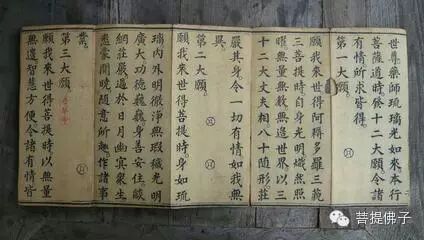 世尊藥師琉璃光如來本行
菩薩道時發十二大願令諸
有情所求皆得
第一大願
願我來世得阿耨多羅三藐
三菩提時自身光明熾然照
曜無量無數無邊世界以三
十二大丈夫相八十隨形莊
嚴其身令一切有情如我無
異
第二大願
願我來世得菩提時身如琉
璃內外明徹淨無瑕穢光明
廣大功德巍巍身善安住燄
網莊嚴過於日月幽冥衆生
悉蒙開曉隨意所趣作諸事
業
第三大願
願我來世得菩提時以無量
無邊智慧方便令諸有情皆
菩提佛子